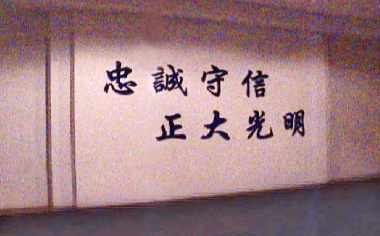 忠誠守信
正大光明